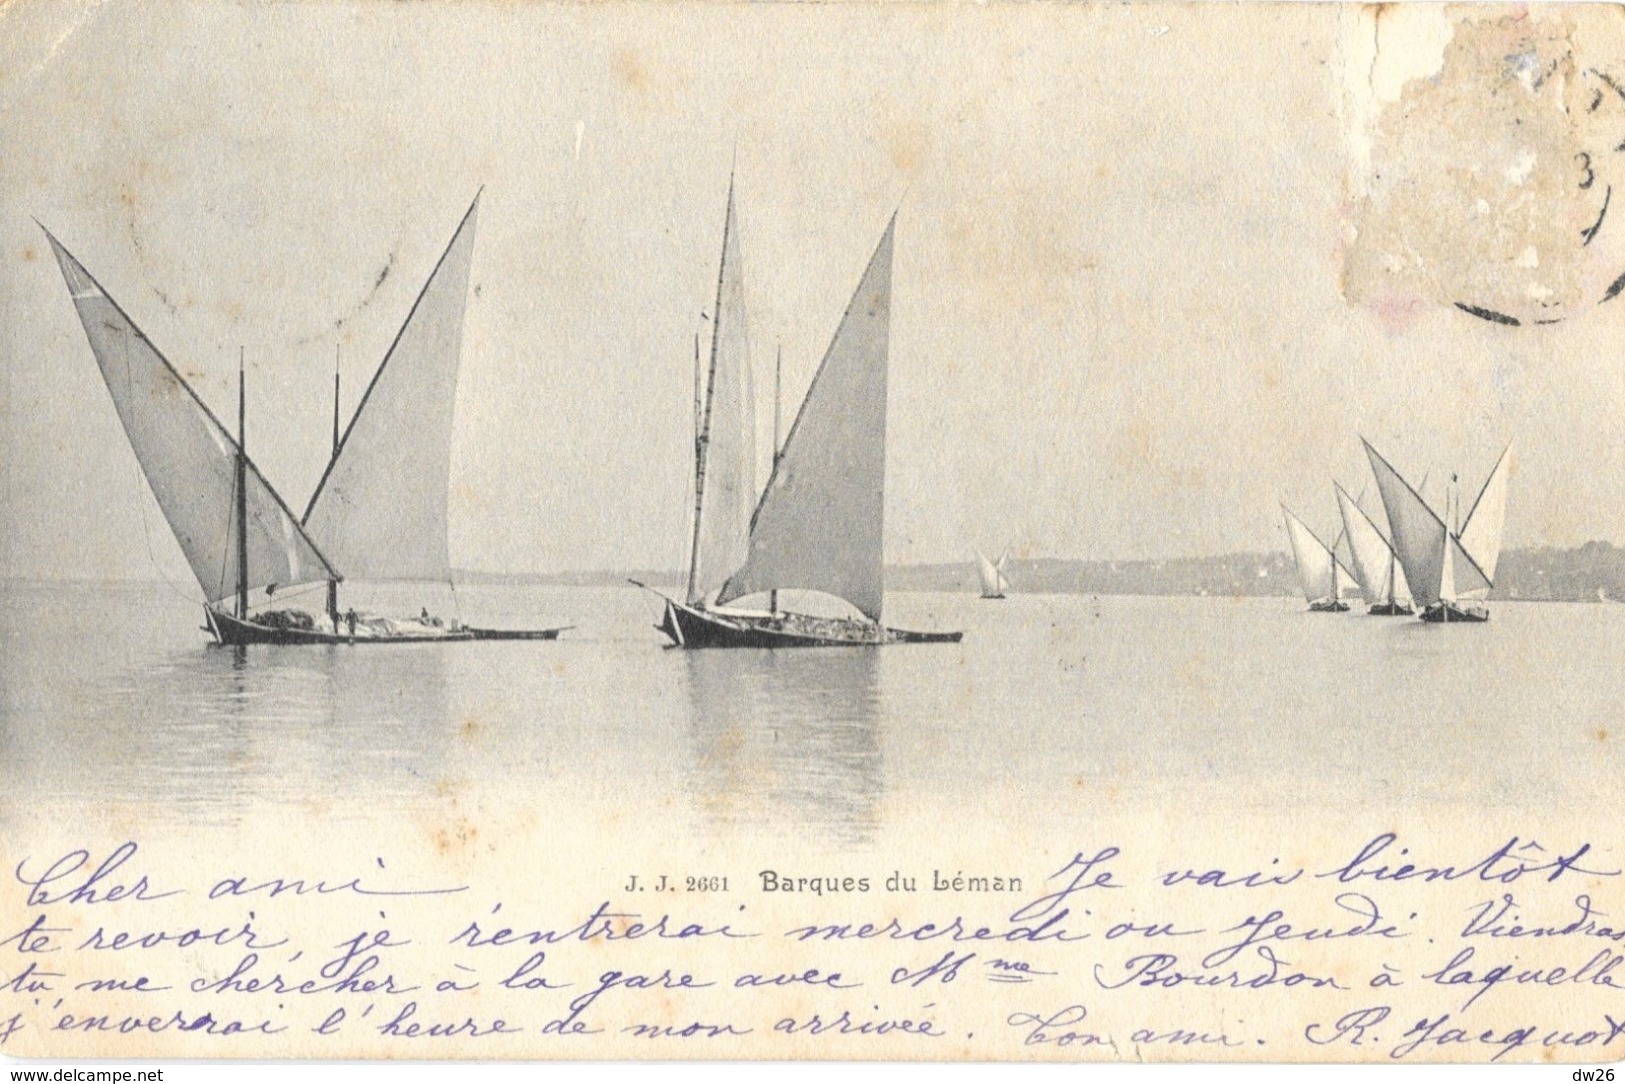 3
Cher ami J. J. 2661 Barques du Léman Je vais bientôt
te revoir, je rentrerai mercredi ou Jeudi. Viendras
tu me chercher à la gare avec Mme Bourdon à laquelle
j'enverrai l'heure de mon arrivée. Ton ami. R. Jacquot
www.delcampe.net
dw26